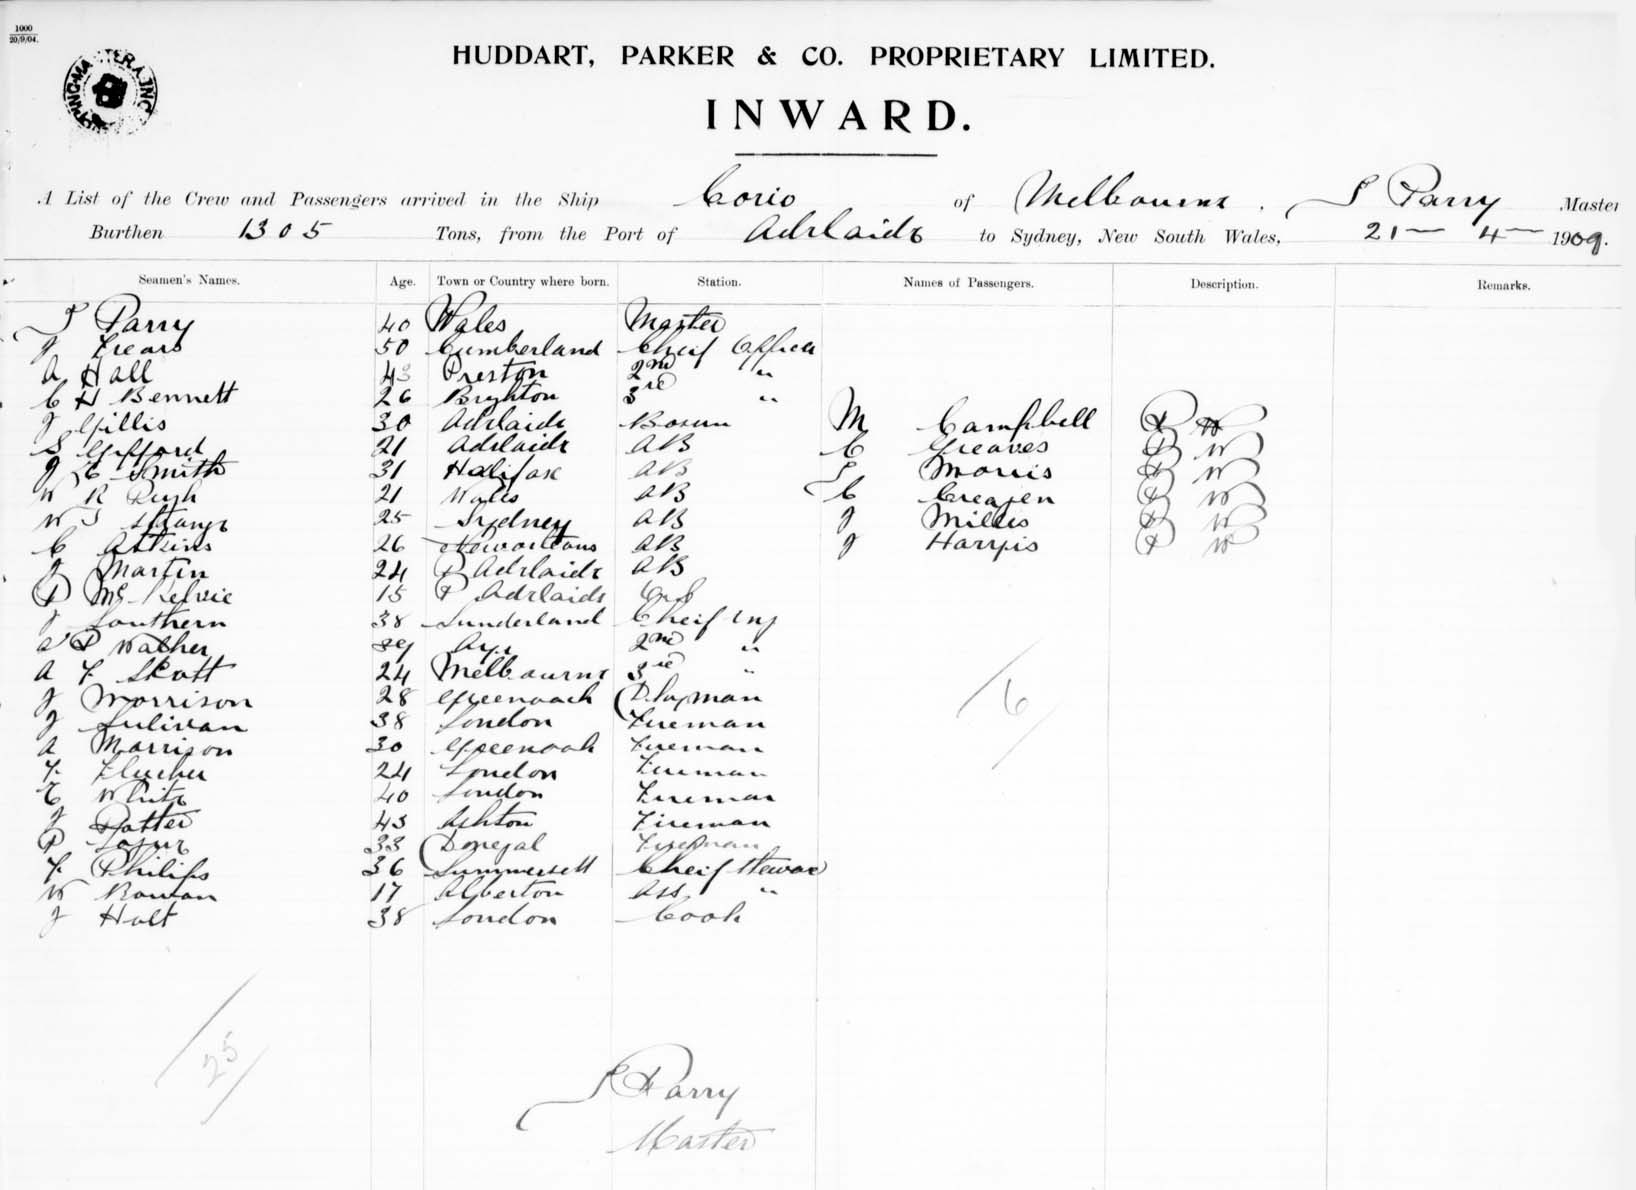 1000
20/9/04.
HUDDART, PARKER & CO. PROPRIETARY LIMITED.
INWARD.
A List of the Crew and Passengers arrived in the Ship Corio of Melbourne. Parry Master
Burthen 1305 Tons, from the Port of Adelaide to Sydney, New South Wales, 21 – 4 – 1909.
Seamen's Names. Age. Town or Country where born. Station. Names of Passengers. Description. Remarks.
Parry 40 Wales Master
J 50 Cumberland Cheif Officer
A Hall 43 Preston 2nd "
C H Bennett 26 Brighton 3rd "
J Gillis 30 Adelaide Bosun M Campbell
S Gifford 21 Adelaide AB C Greaves D W
J E Smith 31 Halifax AB Morris D W
W R Pugh 21 Wales AB C D W
W Strange 25 Sydney AB J Millis D W
C Atkins 26 New orleans AB J Harris
J Martin 24 P Adelaide AB
P Mc Kelvie 15 P Adelaide
J Southern 38 Sunderland Cheif Eng
P Walker 39 Ayr 2nd "
A F Skott 24 Melbourne 3rd "
J Morrison 28 Greenoack
J Sulivan 38 London Fireman
A Morrison 30 Greenoak Fireman
F 24 London Fireman
E White 40 London Fireman
J Potter 43 Ashton Fireman
P 33 Donegal Fireman
F Philips 36 Summersett Cheif Steward
W Rowan 17 Alberton Ass "
J Holt 38 London Cook
6
25
Parry
Master